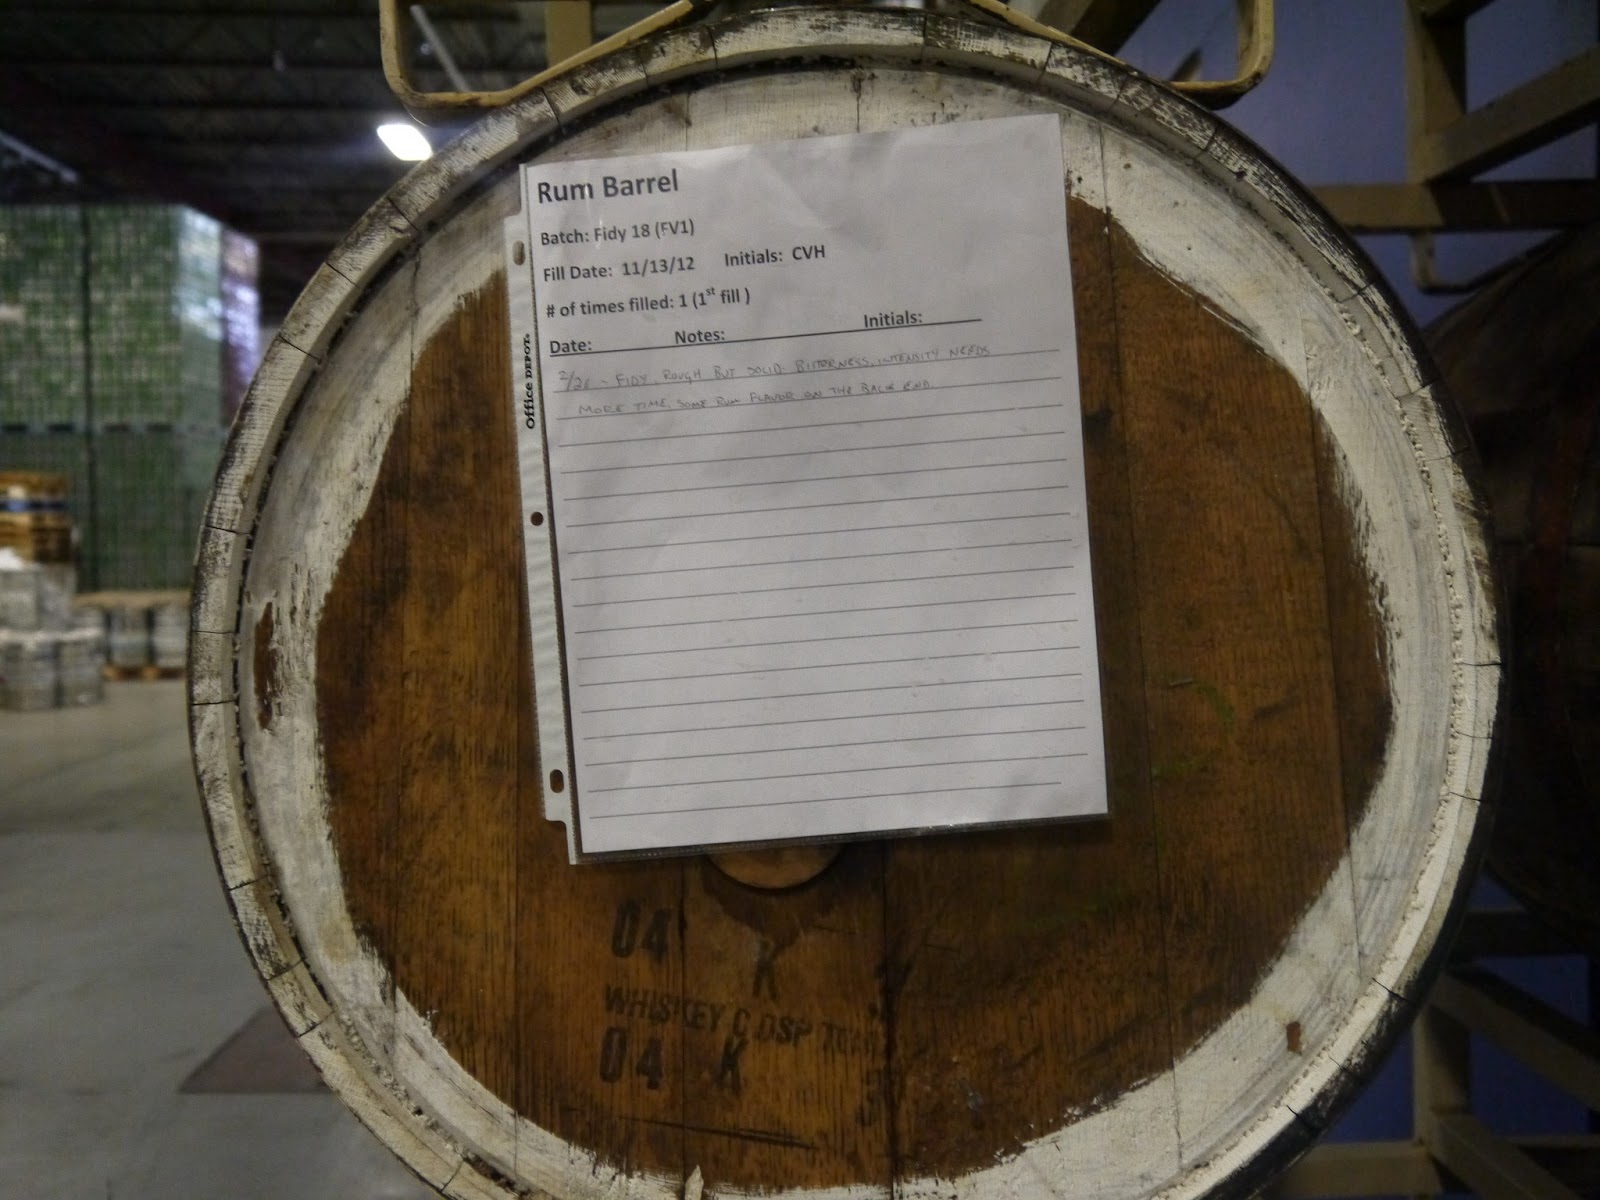 Rum Barrel
Batch: Fidy 18 (FV1)
Fill Date: 11/13/12 Initials: CVH
# of times filled: 1 (1st fill )
Date: Notes: Initials:
2/26 - FIDY, ROUGH BUT SOLID. BITTERNESS, INTENSITY NEEDS
MORE TIME, SOME RUM FLAVOR ON THE BACK END.
Office DEPOT.
04
K
WHISKEY C DSP
04 K